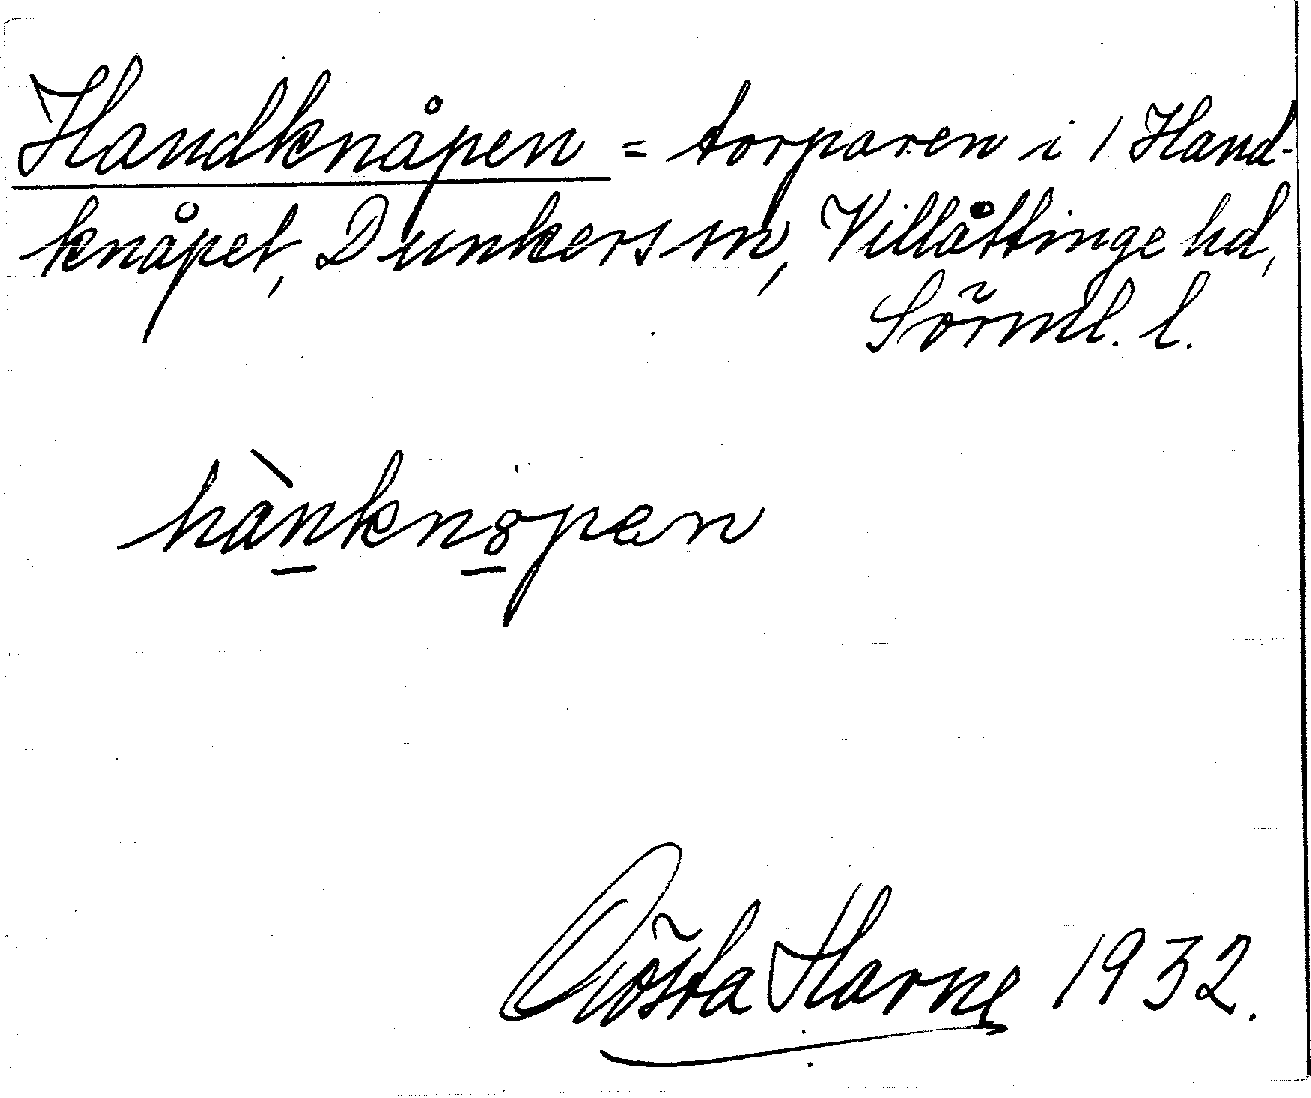 Handknåpen = torparen i / Hand-
knåpet, Dunkers sn, Villåttinge hd,
Sörml. l.
hànknȣpan
Gösta Harne 1932.